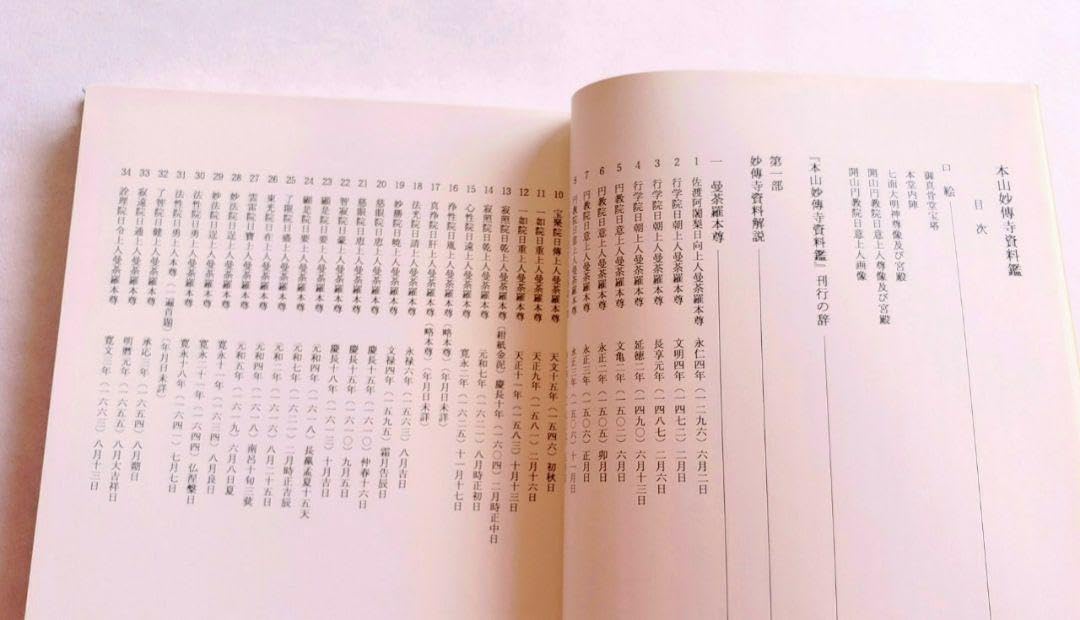 本山妙傳寺資料鑑
目次
口絵
御真骨堂宝塔
本堂内陣
七面大明神尊像及び宮殿
開山円教院日意上人尊像及び宮殿
開山円教院日意上人画像
『本山妙傳寺資料鑑』刊行の辞
第一部
妙傳寺資料解説
一 曼荼羅本尊
1 佐渡阿闍梨日向上人曼荼羅本尊 永仁四年(一二九六)六月二日
2 行学院日朝上人曼荼羅本尊 文明四年(一四七二)二月日
3 行学院日朝上人曼荼羅本尊 長享元年(一四八七)二月六日
4 行学院日朝上人曼荼羅本尊 延徳二年(一四九〇)六月十三日
5 円教院日意上人曼荼羅本尊 文亀二年(一五〇二)六月日
6 円教院日意上人曼荼羅本尊 永正二年(一五〇五)卯月日
7 円教院日意上人曼荼羅本尊 永正三年(一五〇六)正月日
8 円教院日意上人曼荼羅本尊 永正三年(一五〇六)十一月日
10 宝聚院日傳上人曼荼羅本尊 天文十五年(一五四六)初秋日
11 一如院日重上人曼荼羅本尊 天正九年(一五八一)二月十六日
12 一如院日重上人曼荼羅本尊 天正十一年(一五八三)十月十三日
13 寂照院日乾上人曼荼羅本尊(紺紙金泥)慶長十年(一六〇四)二月時正中日
14 寂照院日乾上人曼荼羅本尊 元和七年(一六二一)八月時正初日
15 心性院日遠上人曼荼羅本尊 寛永二年(一六二五)十一月十七日
16 浄性院日 上人曼荼羅本尊(略本尊)(年月日未詳)
17 真浄院日 上人曼荼羅本尊(略本尊)(年月日未詳)
18 法光院日 上人曼荼羅本尊 永禄六年(一五六三)八月吉日
19 妙勝院日暁上人曼荼羅本尊 文禄四年(一五九五)霜月吉辰日
20 慈眼院日恵上人曼荼羅本尊 慶長十五年(一六一〇)仲春十六日
21 慈眼院日恵上人曼荼羅本尊 慶長十五年(一六一〇)九月五日
22 智寂院日 上人曼荼羅本尊 慶長十八年(一六一三)十月吉日
23 顕是院日要上人曼荼羅本尊
24 顕是院日要上人曼荼羅本尊 元和四年(一六一八)長 孟夏十五天
25 了眼院日 上人曼荼羅本尊 元和七年(一六二一)二月時正吉辰
26 東光院日在上人曼荼羅本尊 元和二年(一六一六)八月二十五日
27 雲雷院日寶上人曼荼羅本尊 元和五年(一六一九)六月八日夏
28 妙法院日 上人曼荼羅本尊 寛永 年( )南呂十旬二
29 妙 院日逞上人曼荼羅本尊 寛永十一年(一六三四)八月良日
30 法性院日勇上人曼荼羅本尊 寛永二十一年(一六四四)仏涅槃日
31 法性院日勇上人曼荼羅本尊 寛永十八年(一六四一)七月七日
32 了智院日健上人本尊(一遍首題)(年月日未詳)
33 寂遠院日通上人曼荼羅本尊 承応三年(一六五四)八月朔日
34 詮理院日令上人曼荼羅本尊 明暦元年(一六五五)八月大吉祥日
寛文三年(一六六三)八月十三日